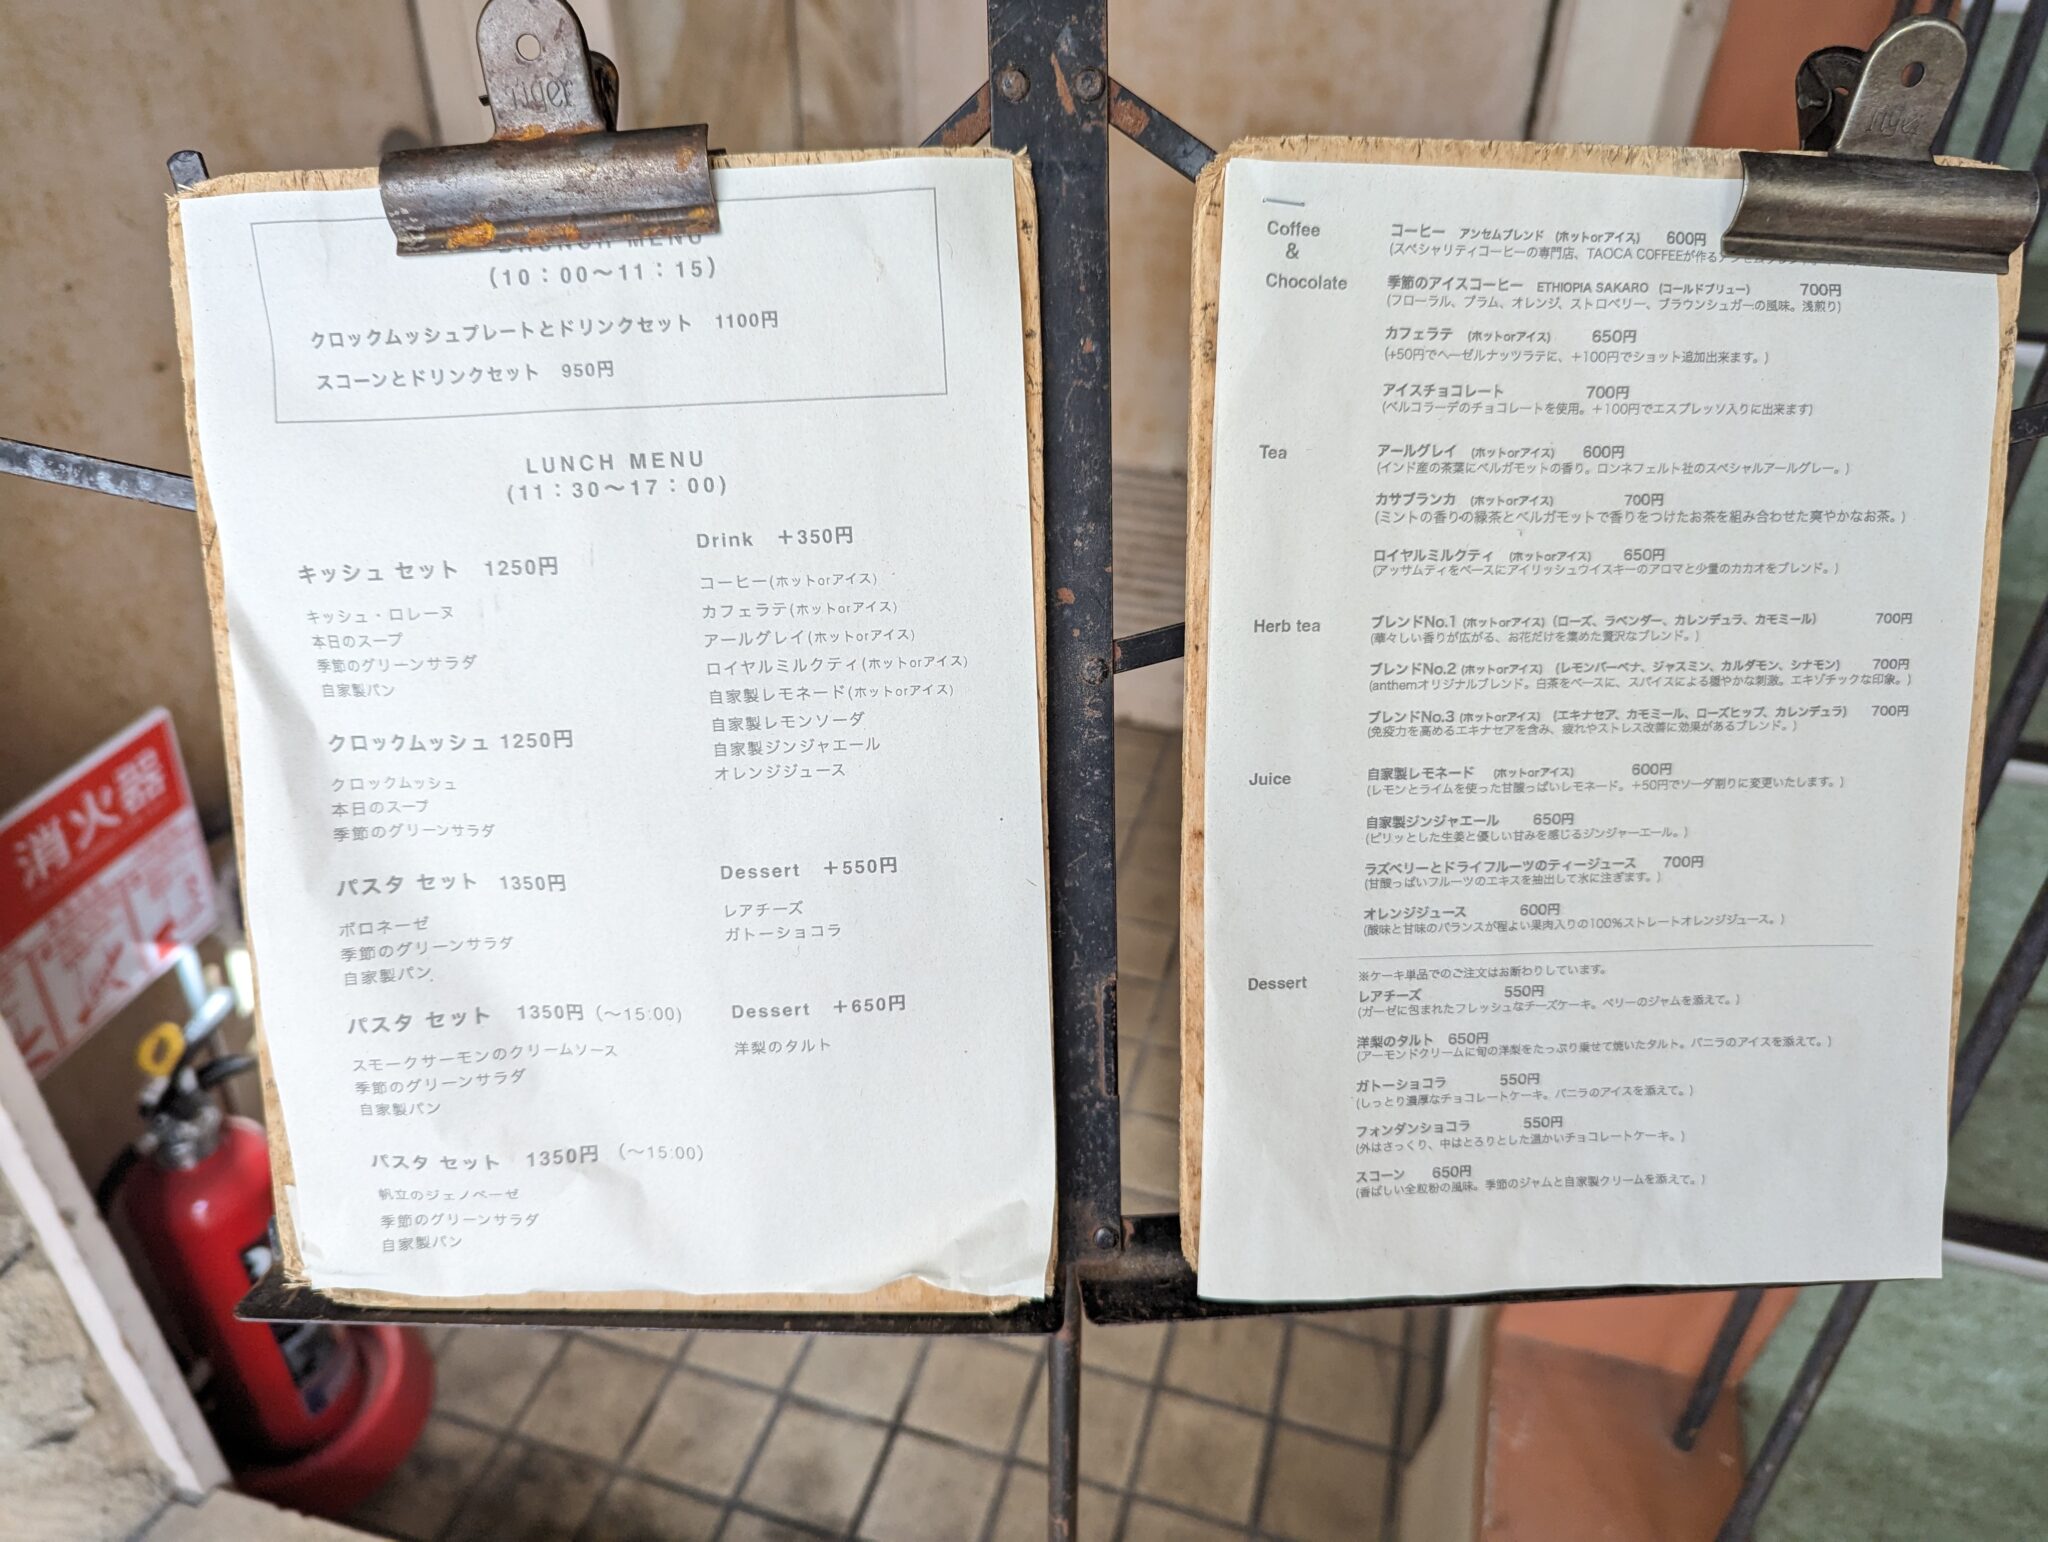 Tiger
BRUNCH MENU
(10：00〜11：15)
クロックムッシュプレートとドリンクセット　1100円
スコーンとドリンクセット　950円
LUNCH MENU
(11：30〜17：00)
キッシュ セット　1250円
キッシュ・ロレーヌ
本日のスープ
季節のグリーンサラダ
自家製パン
クロックムッシュ 1250円
クロックムッシュ
本日のスープ
季節のグリーンサラダ
パスタ セット　1350円
ボロネーゼ
季節のグリーンサラダ
自家製パン
パスタ セット　1350円（〜15:00)
スモークサーモンのクリームソース
季節のグリーンサラダ
自家製パン
パスタ セット　1350円　（〜15:00)
帆立のジェノベーゼ
季節のグリーンサラダ
自家製パン
Drink　＋350円
コーヒー(ホットorアイス)
カフェラテ(ホットorアイス)
アールグレイ(ホットorアイス)
ロイヤルミルクティ(ホットorアイス)
自家製レモネード(ホットorアイス)
自家製レモンソーダ
自家製ジンジャエール
オレンジジュース
Dessert　＋550円
レアチーズ
ガトーショコラ
Dessert　＋650円
洋梨のタルト
Tiger
Coffee
&
Chocolate
コーヒー　アンセムブレンド　(ホットorアイス)　600円
(スペシャリティコーヒーの専門店、TAOCA COFFEEが作る
季節のアイスコーヒー　ETHIOPIA SAKARO　(コールドブリュー)　700円
(フローラル、プラム、オレンジ、ストロベリー、ブラウンシュガーの風味。浅煎り)
カフェラテ　(ホットorアイス)　650円
(+50円でヘーゼルナッツラテに、＋100円でショット追加出来ます。)
アイスチョコレート　700円
(ベルコラーデのチョコレートを使用。＋100円でエスプレッソ入りに出来ます)
Tea
アールグレイ　(ホットorアイス)　600円
(インド産の茶葉にベルガモットの香り。ロンネフェルト社のスペシャルアールグレー。)
カサブランカ　(ホットorアイス)　700円
(ミントの香りの緑茶とベルガモットで香りをつけたお茶を組み合わせた爽やかなお茶。)
ロイヤルミルクティ　(ホットorアイス)　650円
(アッサムティをベースにアイリッシュウイスキーのアロマと少量のカカオをブレンド。)
Herb tea
ブレンドNo.1 (ホットorアイス)（ローズ、ラベンダー、カレンデュラ、カモミール）　700円
(華々しい香りが広がる、お花だけを集めた贅沢なブレンド。)
ブレンドNo.2 (ホットorアイス)　(レモンバーベナ、ジャスミン、カルダモン、シナモン)　700円
(anthemオリジナルブレンド。白茶をベースに、スパイスによる穏やかな刺激。エキゾチックな印象。)
ブレンドNo.3 (ホットorアイス)　(エキナセア、カモミール、ローズヒップ、カレンデュラ)　700円
(免疫力を高めるエキナセアを含み、疲れやストレス改善に効果があるブレンド。)
Juice
自家製レモネード　(ホットorアイス)　600円
(レモンとライムを使った甘酸っぱいレモネード。+50円でソーダ割りに変更いたします。)
自家製ジンジャエール　650円
(ピリッとした生姜と優しい甘みを感じるジンジャーエール。)
ラズベリーとドライフルーツのティージュース　700円
(甘酸っぱいフルーツのエキスを抽出して氷に注ぎます。)
オレンジジュース　600円
(酸味と甘味のバランスが程よい果肉入りの100%ストレートオレンジジュース。)
Dessert
※ケーキ単品でのご注文はお断わりしています。
レアチーズ　550円
(ガーゼに包まれたフレッシュなチーズケーキ。ベリーのジャムを添えて。)
洋梨のタルト　650円
(アーモンドクリームに旬の洋梨をたっぷり乗せて焼いたタルト。バニラのアイスを添えて。)
ガトーショコラ　550円
(しっとり濃厚なチョコレートケーキ。バニラのアイスを添えて。)
フォンダンショコラ　550円
(外はさっくり、中はとろりとした温かいチョコレートケーキ。)
スコーン　650円
(香ばしい全粒粉の風味。季節のジャムと自家製クリームを添えて。)
消火器